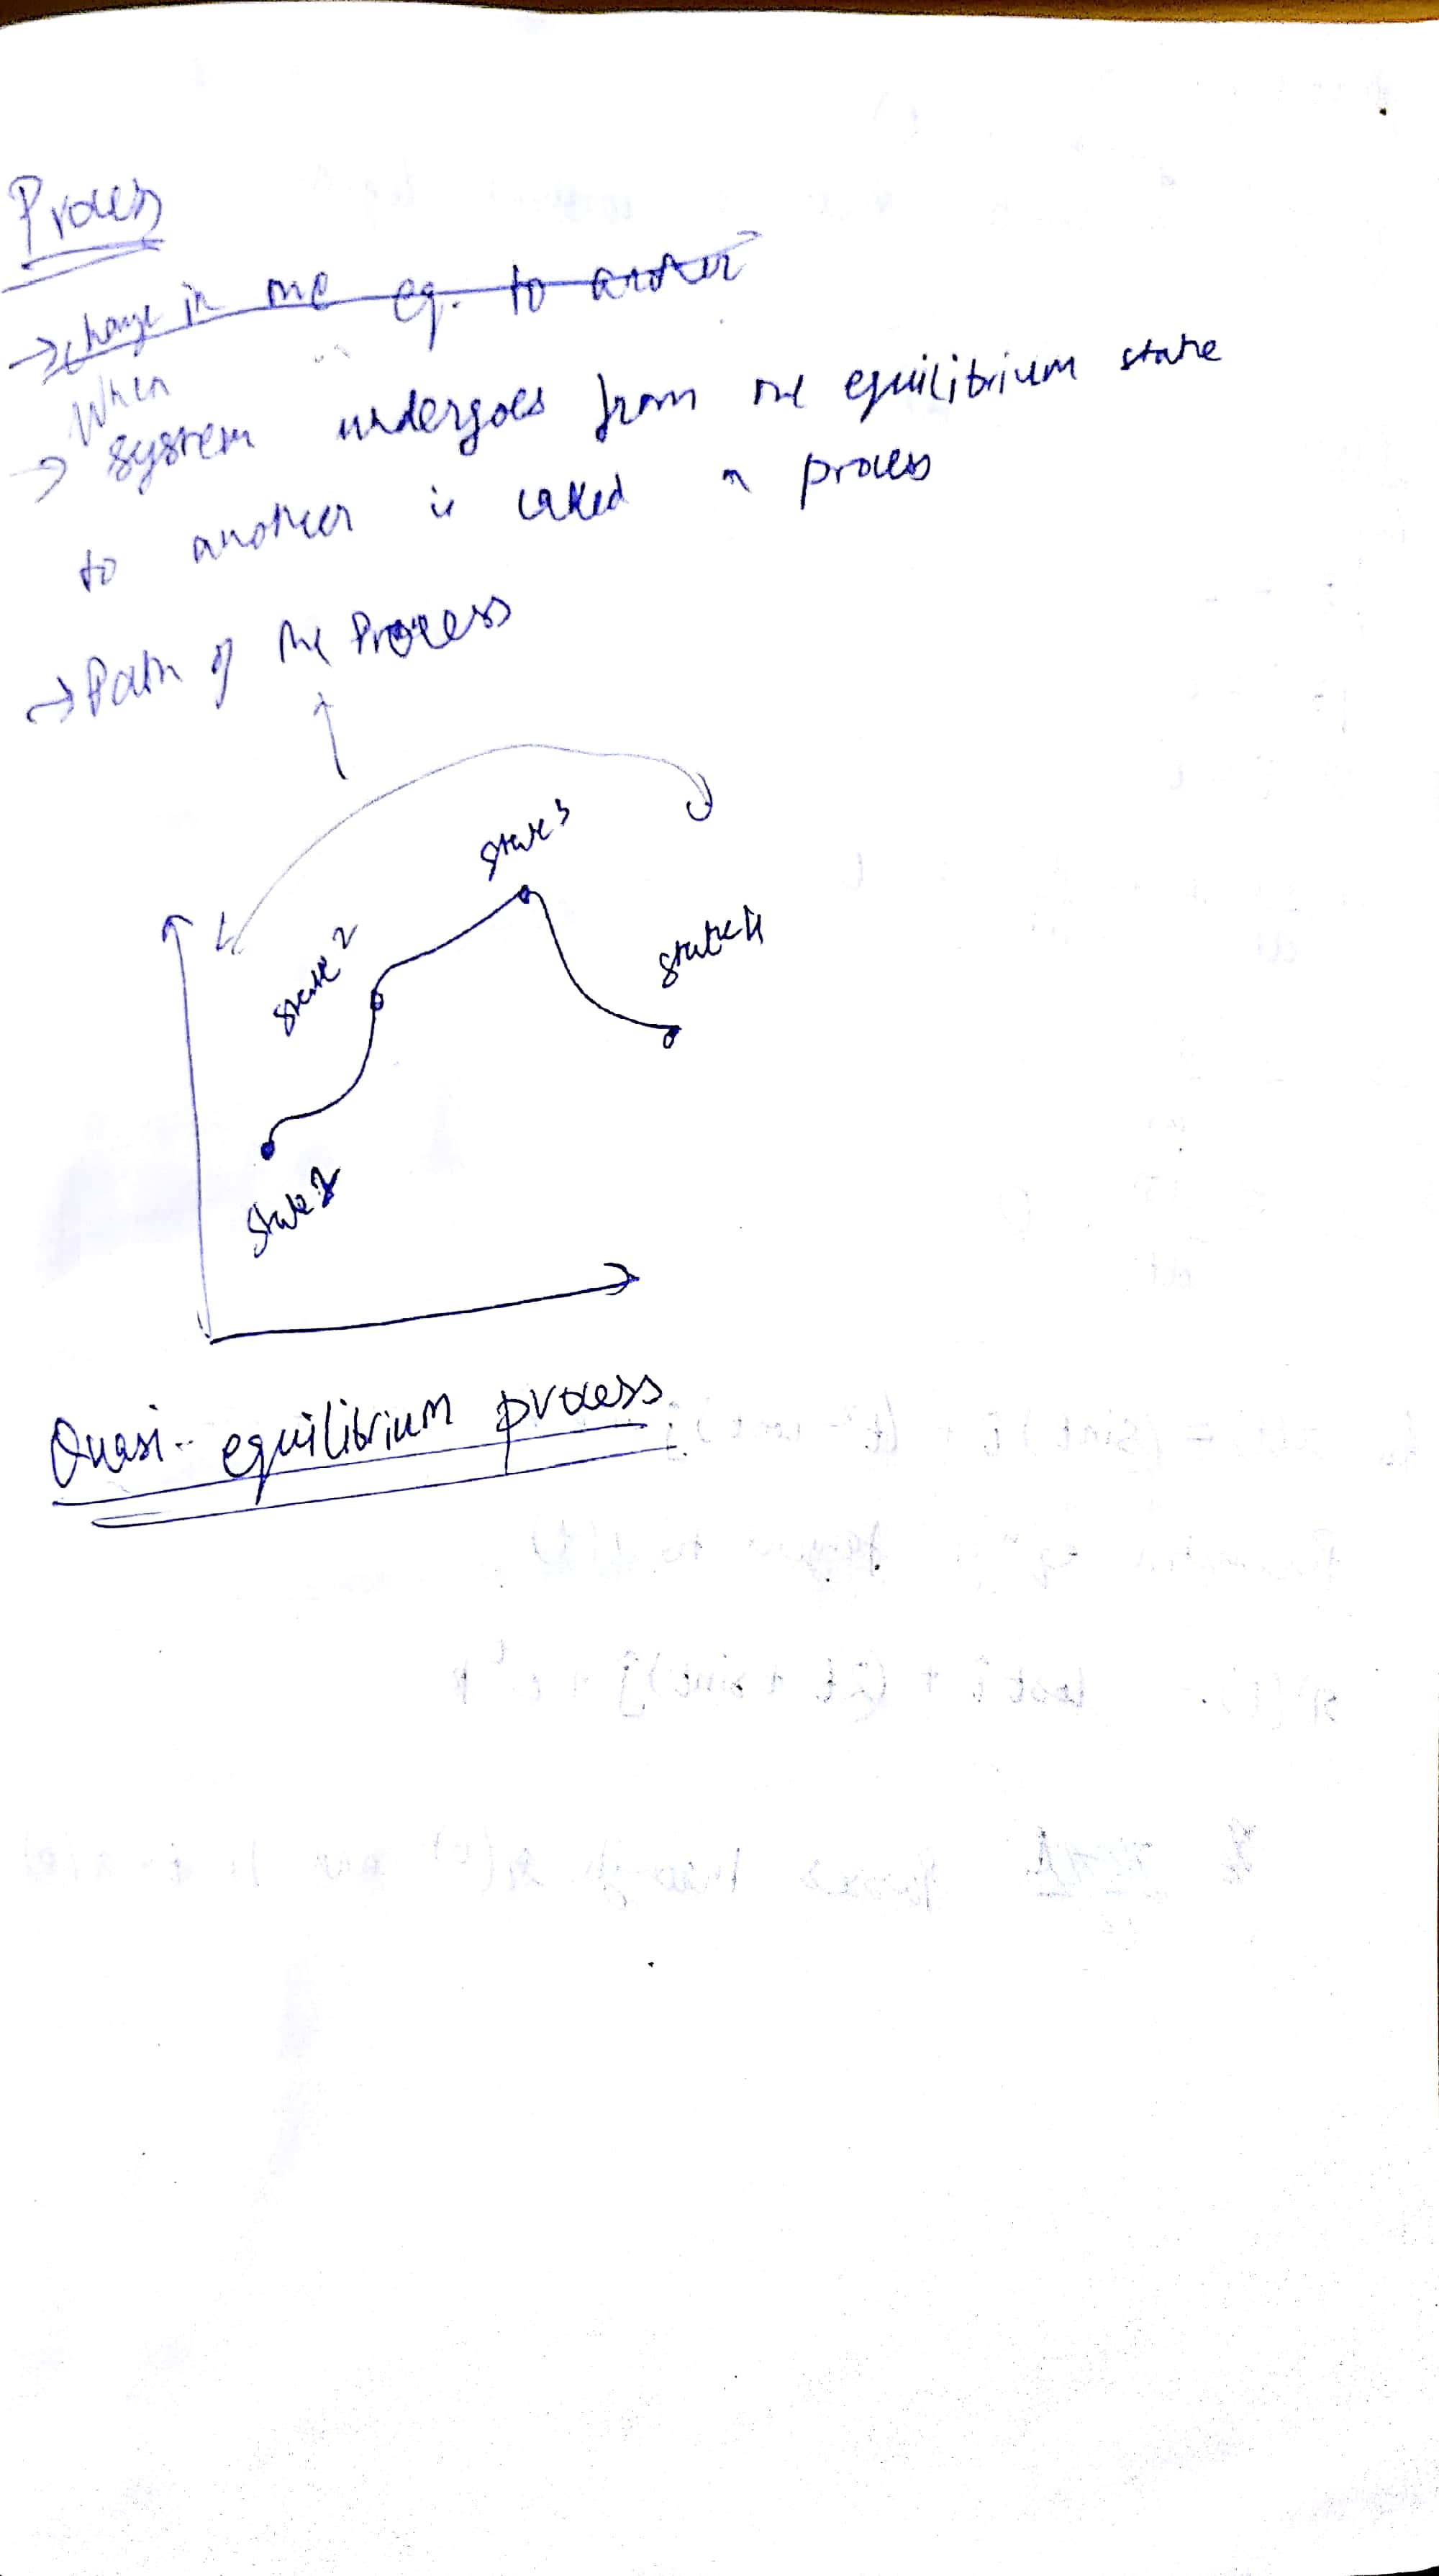 Process
→ change in one eq. to another
When
→ system undergoes from one equilibrium state
to another is called a process
→ Path of the Process
State 3
State 2
State 4
State
Quasi-equilibrium process